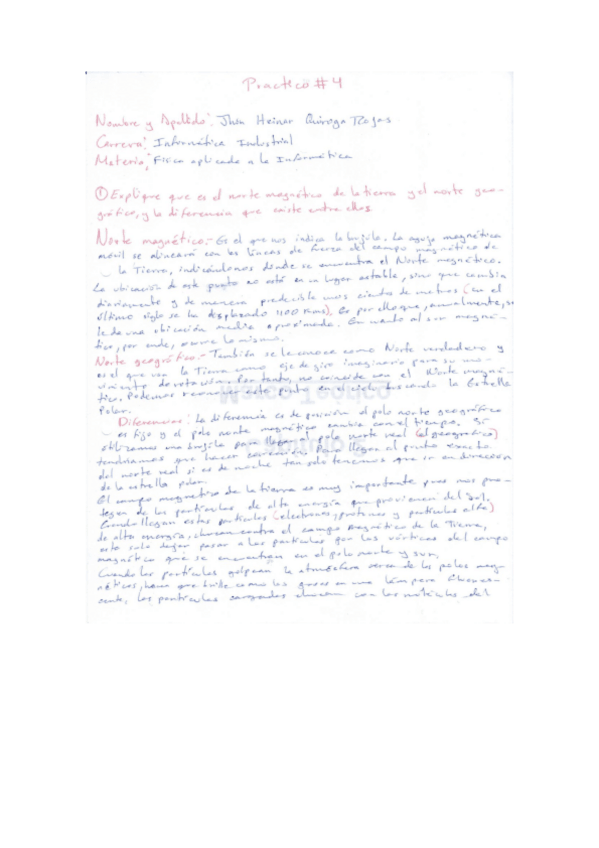 Practico # 4
Nombre y Apellido: Jhon Heiner Quiroga Rojas
Carrera: Informática Industrial
Materia: Física aplicada a la Informática
① Explique que es el norte magnético de la tierra y el norte geo-
gráfico, y la diferencia que existe entre ellos
Norte magnético.- Es el que nos indica la brújula. La aguja magnética
móvil se alineará con las líneas de fuerza del campo magnético de
la Tierra, indicándonos dónde se encuentra el Norte magnético.
La ubicación de este punto no está en un lugar estable, sino que cambia
diariamente y de manera predecible unos cientos de metros (en el
último siglo se ha desplazado 1100 Kms). Es por ello que, anualmente, se
le da una ubicación media aproximada. En cuanto al sur magné-
tico, por ende, ocurre lo mismo.
Norte geográfico.- También se le conoce como Norte verdadero y
es el que usa la Tierra como eje de giro imaginario para su mo-
vimiento de rotación. Por tanto, no coincide con el Norte magné-
tico. Podemos reconocer este punto en el cielo buscando la Estrella
Polar.
Diferencias: La diferencia es de posición el polo norte geográfico
es fijo y el polo norte magnético cambia con el tiempo. Si
utilizamos una brújula para llegar al polo norte real (el geográfico)
tendríamos que hacer correcciones para llegar al punto exacto
del norte real si es de noche tan solo tenemos que ir en dirección
de la estrella polar.
El campo magnético de la tierra es muy importante pues nos pro-
tegen de las partículas de alta energía que provienen del Sol.
Cuando llegan estas partículas (electrones, protones y partículas alfa)
de alta energía, chocan contra el campo magnético de la Tierra,
esto solo dejan pasar a las partículas por los vórtices del campo
magnético que se encuentran en el polo norte y sur.
Cuando las partículas golpean la atmósfera cerca de los polos mag-
néticos, hace que brille como los gases en una lámpara fluores-
cente, las partículas cargadas chocan con las moléculas del